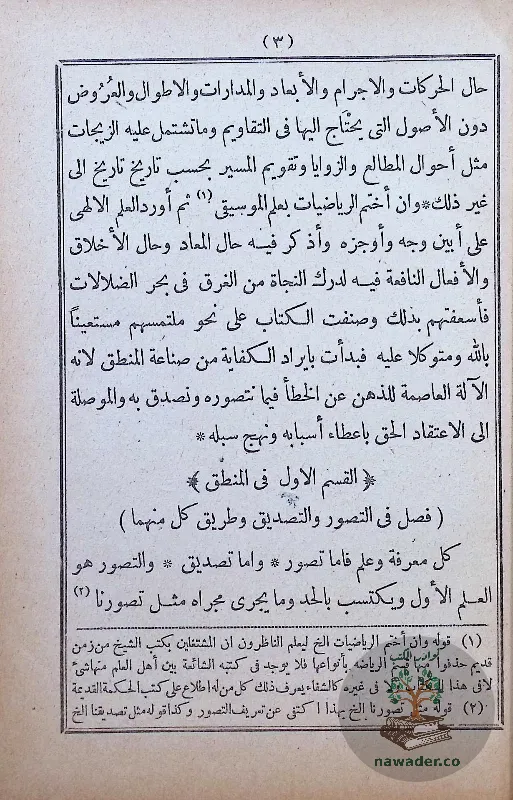 (٣)
حال الحركات والاجرام والأبعاد والمدارات والاطوال والعُرُوض
دون الأصول التى يحتاج اليها فى التقاويم وما تشتمل عليه الزيجات
مثل أحوال المطالع والزوايا وتقويم المسير بحسب تاريخ تاريخ الى
غير ذلك * وان أختم الرياضيات بعلم الموسيقى (١) ثم أورد العلم الالهى
على أبين وجه وأوجزه وأذكر فيه حال المعاد وحال الأخلاق
والأفعال النافعة فيه لدرك النجاة من الغرق فى بحر الضلالات
فأسعفتهم بذلك وصنفت الكتاب على نحو ملتمسهم مستعيناً
بالله ومتوكلا عليه فبدأت بايراد الكفاية من صناعة المنطق لانه
الآلة العاصمة للذهن عن الخطأ فيما نتصوره ونصدق به والموصلة
الى الاعتقاد الحق باعطاء أسبابه ونهج سبله *
﴿ القسم الاول فى المنطق ﴾
( فصل فى التصور والتصديق وطريق كل منهما )
كل معرفة وعلم فاما تصور * واما تصديق * والتصور هو
العلم الأول ويكتسب بالحد وما يجرى مجراه مثل تصورنا (٢)
(١) قوله وان أختم الرياضيات الخ ليعلم الناظرون ان المشتغلين بكتب الشيخ من زمن
قديم حذفوا منها قسم الرياضه بأنواعها فلا يوجد فى كتبه الشائعة بين أهل العلم منها شئ
لا فى هذا ولا فى غيره كالشفاء يعرف ذلك كل من له اطلاع على كتب الحكمة القديمة
(٢) قوله مثل تصورنا الخ بهذا اكتفى عن تعريف التصور وكذا قوله مثل تصديقنا الخ
نوادر الكتب
nawader.co